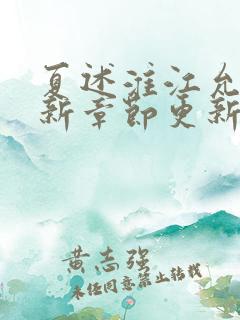 夏述淮江允
新章节更新
黄志强
未经同意禁止转载